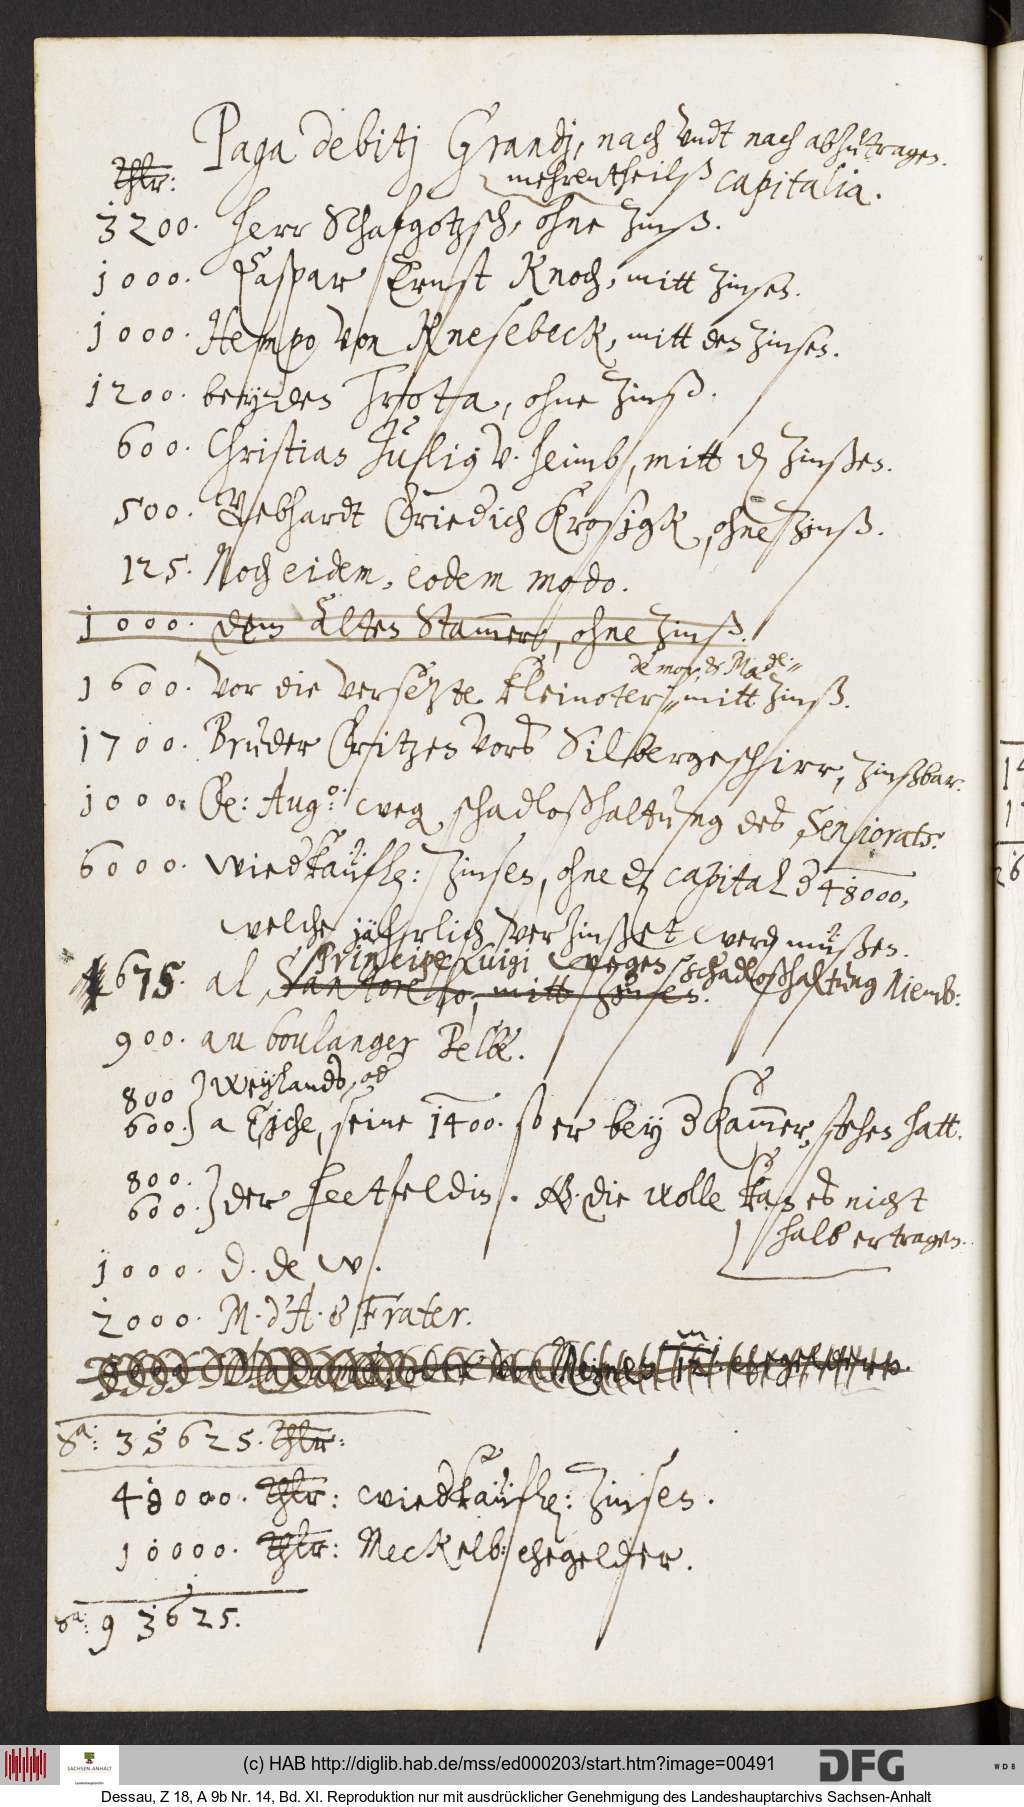 Paga debitj Grandj, nach undt nach abzutragen.
Thlr: mehrentheilß capitalia.
3200. Herr Schafgotzsch, ohne zinß.
1000. Caspar Ernst Knoch, mitt zinsen.
1000. Hempo von Knesebeck, mitt den zinsen.
1200. beyden Trotta, ohne zinß.
600. Christian Julius v. Heimb, mitt den zinßen.
500. Gebhardt Friedich Krosigk, ohne zinß.
125. Noch eidem, eodem modo.
1000. dem Alten Stammer, ohne zinß.
1600. vor die versetzte kleinoter mitt zinß.
1700. Bruder Fritzen vors Silbergeschirr, zinßbar.
1000. F: Aug: weg schadloßhaltung des Seniorats:
6000. wiedkäufl: zinsen, ohne dz capital d 48000,
welche jährlich verzinßet werden müßen.
Principe Luigi wegen schadloßhaltung Niemb:
675. al Santorello, mitt zinsen.
900. au boulanger Pelbe.
800 Weylands,
600. a Eiche, seine 1400. so er bey d Kammer, stehen hatt.
800.
600. der Heetfeldin. NB. die wolle kan es nicht
halb ertragen.
1000. D. de W.
2000. M. d'A. & Frater.
Sa: 35625. Thlr:
48000. Thlr: wiedkäufl: zinsen.
10000. Thlr: Meckelb: ehegelder.
Sa: 93625.
(c) HAB http://diglib.hab.de/mss/ed000203/start.htm?image=00491
SACHSEN-ANHALT
DFG
WDB
Dessau, Z 18, A 9b Nr. 14, Bd. XI. Reproduktion nur mit ausdrücklicher Genehmigung des Landeshauptarchivs Sachsen-Anhalt